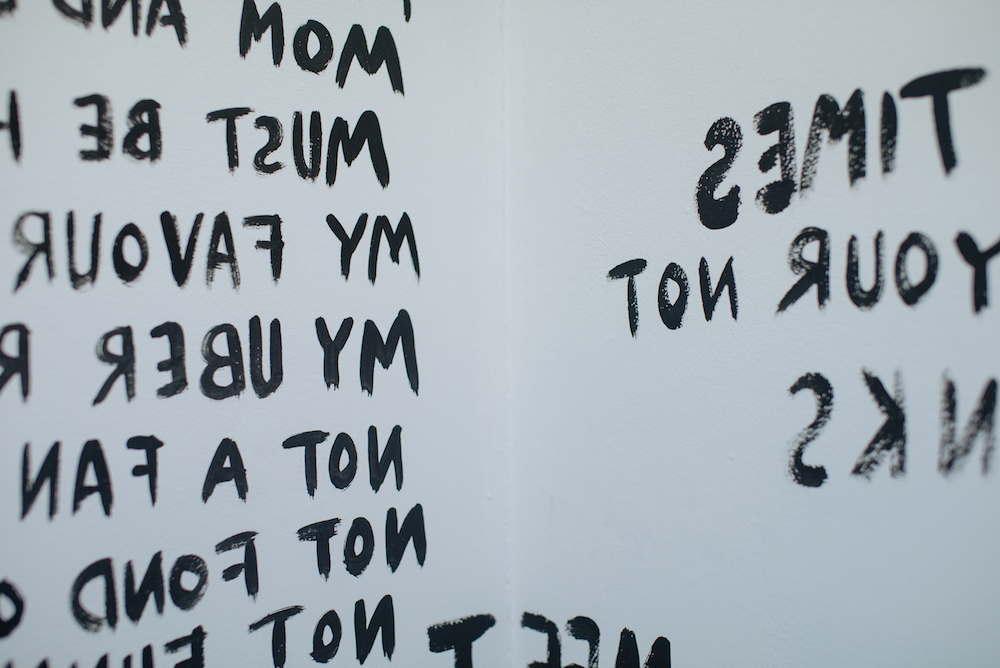 TIMES
YOUR NOT
NKS
MEET
MOM AND
MUST BE H
MY FAVOUR
MY UBER R
NOT A FAN
NOT FOND O
NOT FUNN